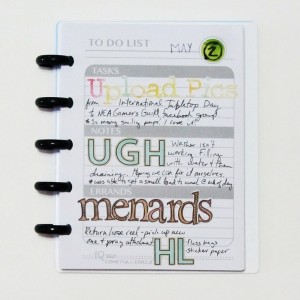 TO DO LIST
MAY 2
TASKS
Upload Pics
from International Tabletop Day
to NEA Gamers Guild facebook group
so many smiley peeps. I love it!
NOTES
UGH Washer isn't
working filling
with water & then
draining. Hoping we can fix it ourselves.
was able to get a small load to wash @ end of day
ERRANDS
menards
Return hose reel - pick up new
one & spray attachment
HL
fluss bags
sticker paper